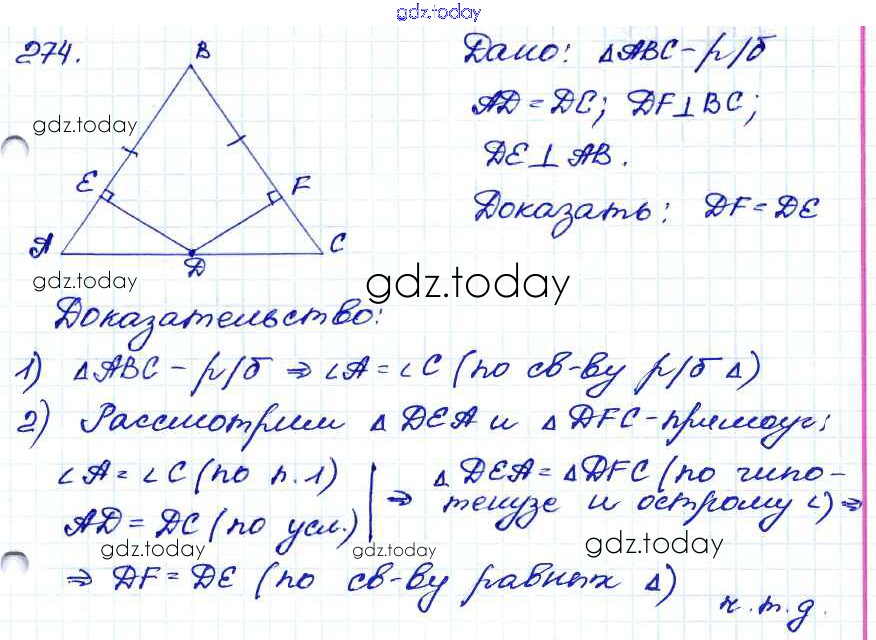 gdz.today
274.
B
Дано: △ABC – р/б
gdz.today
AD = DC; DF⊥BC;
E
F
DE⊥AB.
A
C
D
Доказать: DF = DE
gdz.today
gdz.today
Доказательство:
1) △ABC – р/б ⇒ ∠A = ∠C (по св-ву р/б △)
2) Рассмотрим △DEA и △DFC – прямоуг;
∠A = ∠C (по п.1)
AD = DC (по усл.)
⇒ △DEA = △DFC (по гипо-
тенузе и острому ∠) ⇒
gdz.today
gdz.today
gdz.today
⇒ DF = DE (по св-ву равных △)
ч.т.д.